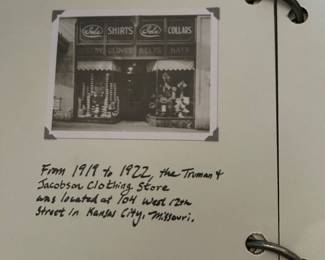 Ide SHIRTS Ide COLLARS
GLOVES BELTS HATS
From 1919 to 1922, the Truman &
Jacobson Clothing Store
was located at 104 West 12th
Street in Kansas City, Missouri.